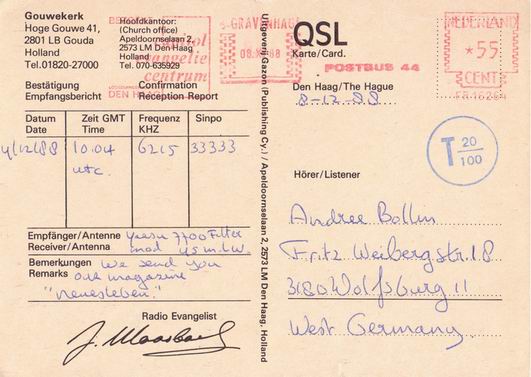 Gouwekerk
Hoge Gouwe 41,
2801 LB Gouda
Holland
Tel.01820-27000
Hoofdkantoor:
(Church office)
Apeldoornselaan 2,
2573 LM Den Haag
Holland
Tel. 070-635929
evangelie
centrum
DEN HAAG
Bestätigung
Empfangsbericht
Confirmation
Reception Report
Datum
Date
Zeit GMT
Time
Frequenz
KHZ
Sinpo
4/12/88
10.04
utc.
6215
33333
Empfänger/Antenne Yaesu 7700 Filter
Receiver/Antenna mod 45 m. L.W.
Bemerkungen We send you
Remarks our magazine
"neuesleben."
Radio Evangelist
J. Maasbach
Uitgeverij Gazon (Publishing Cy.) / Apeldoornselaan 2, 2573 LM Den Haag, Holland
's-GRAVENHAGE
QSL
Karte/Card.
POSTBUS 44
NEDERLAND
*55
CENT
Den Haag/The Hague
8-12-88
T 20/100
Hörer/Listener
Andree Bollin
Fritz Weibergstr. 18
3180 Wolfsburg 11
West Germany